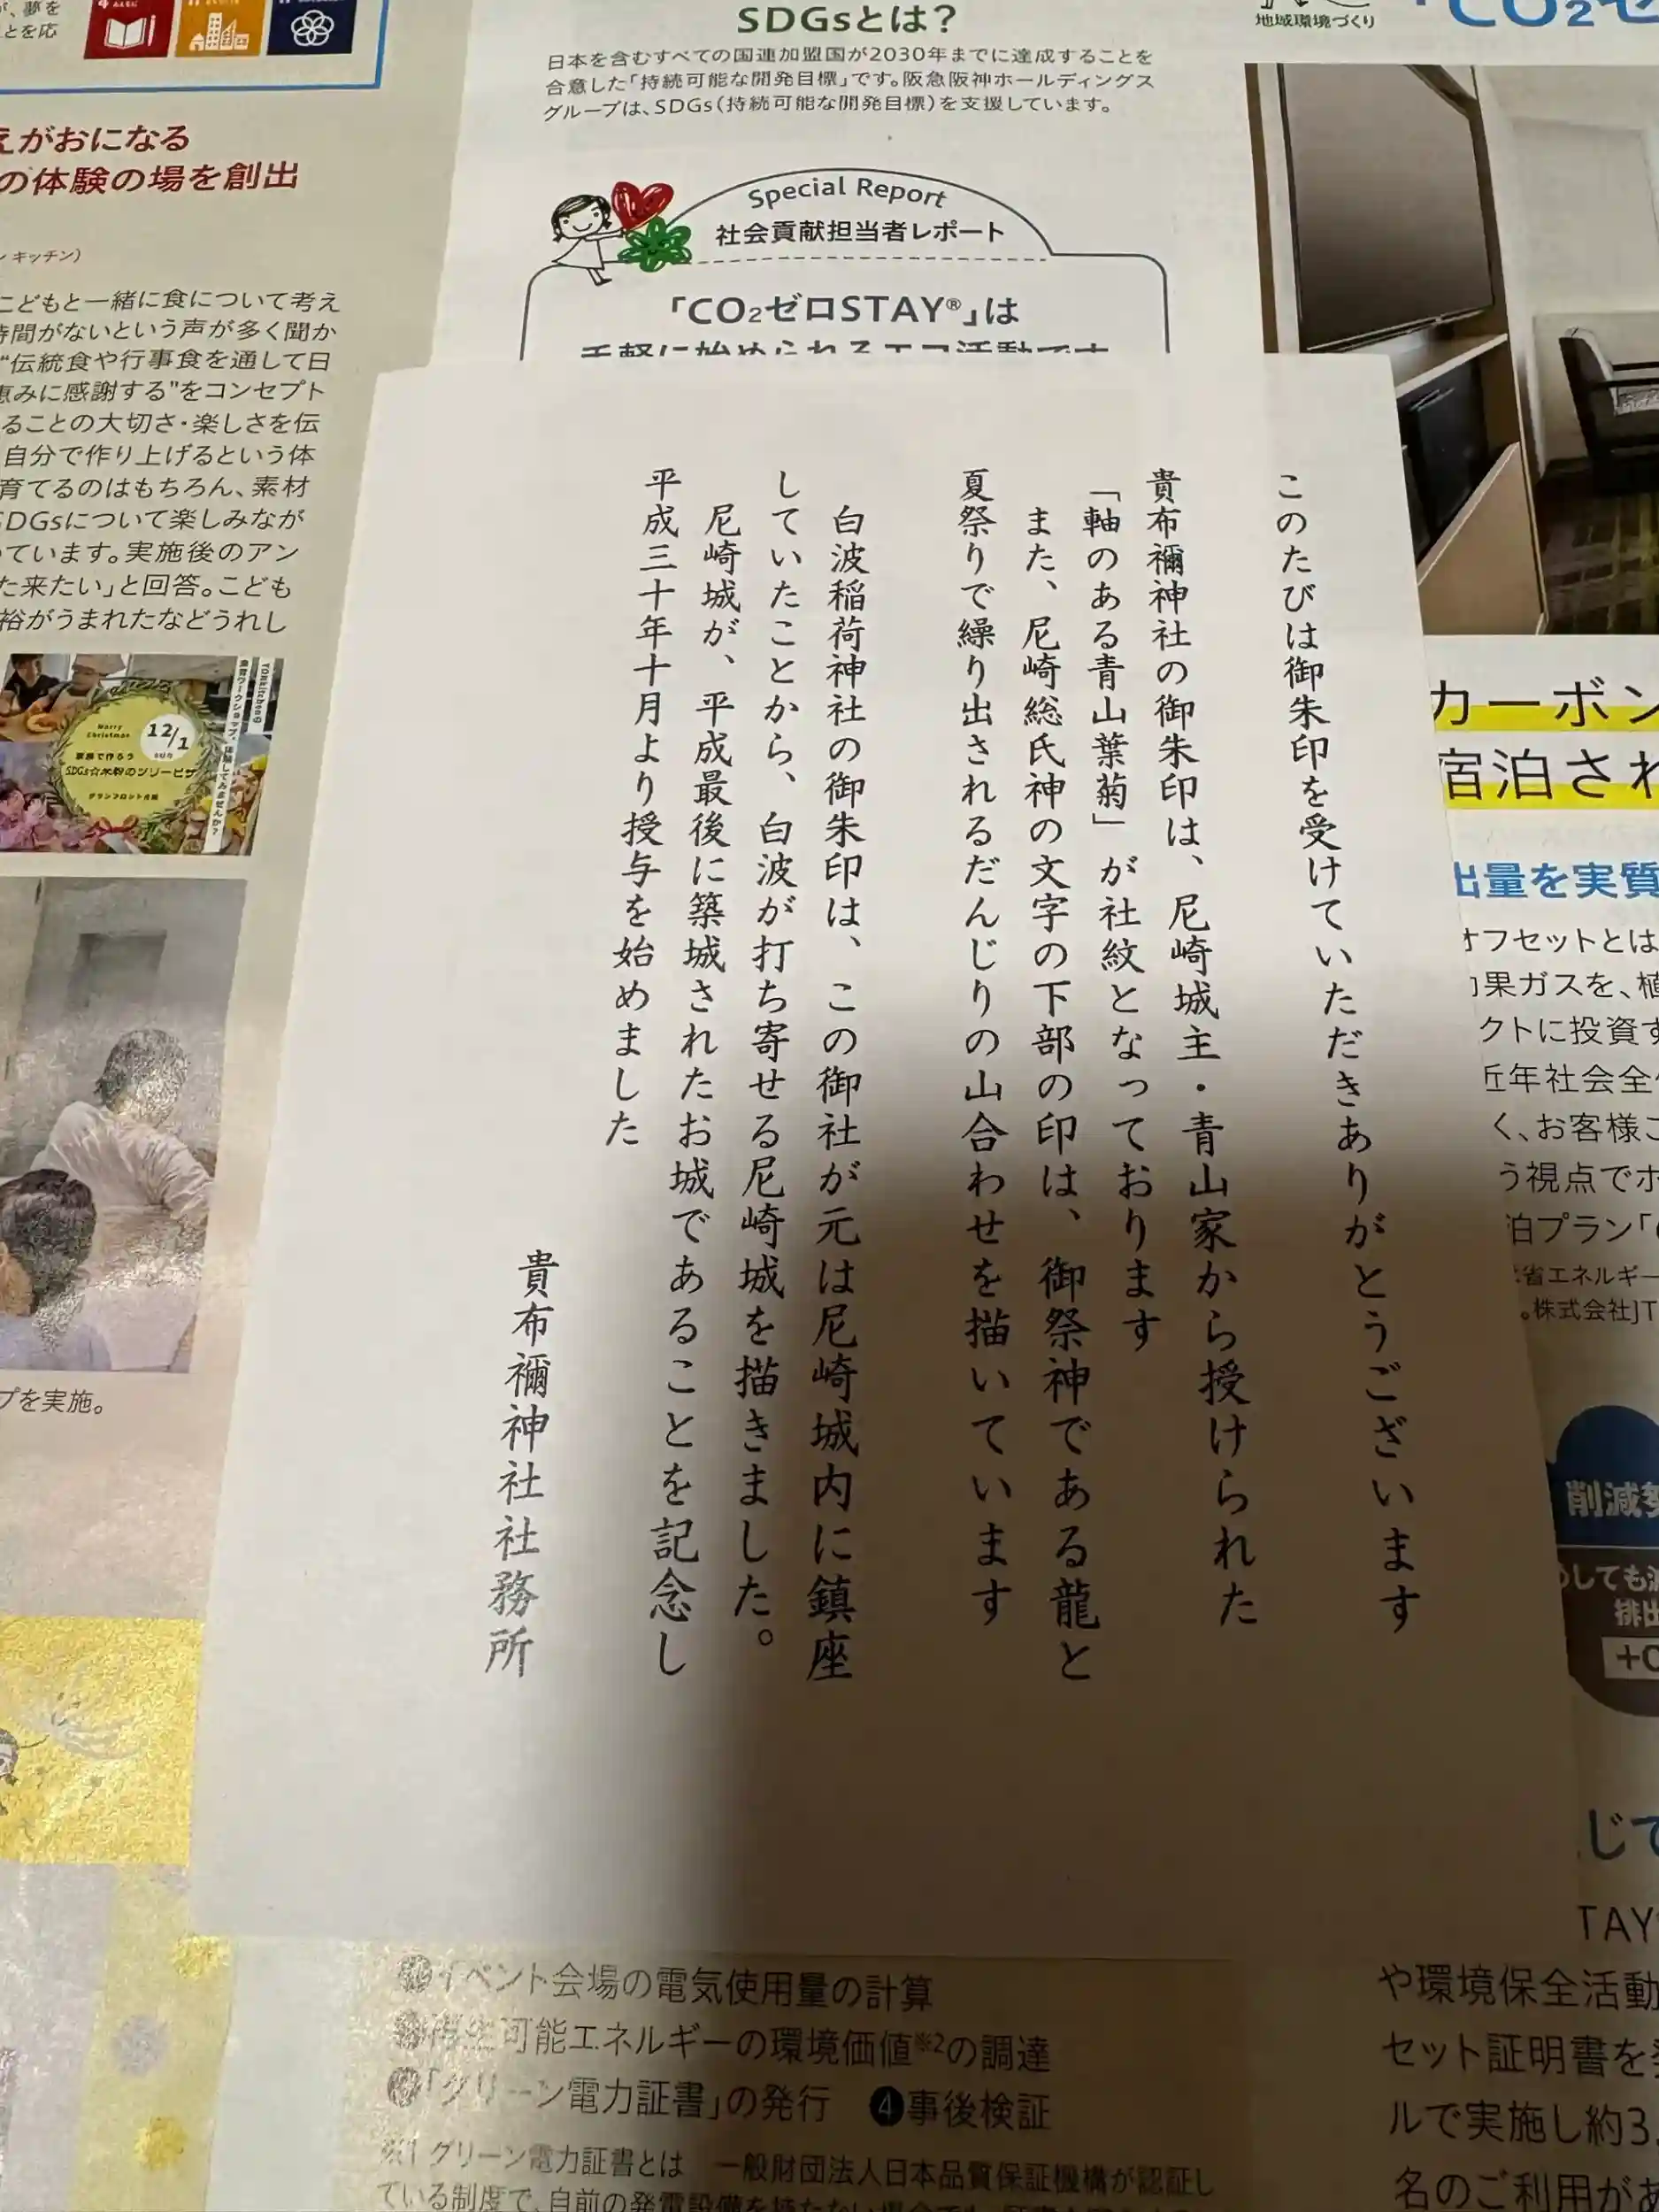 このたびは御朱印を受けていただきありがとうございます
貴布禰神社の御朱印は、尼崎城主・青山家から授けられた
「軸のある青山葉菊」が社紋となっております
また、尼崎総氏神の文字の下部の印は、御祭神である龍と
夏祭りで繰り出されるだんじりの山合わせを描いています
白波稲荷神社の御朱印は、この御社が元は尼崎城内に鎮座
していたことから、白波が打ち寄せる尼崎城を描きました。
尼崎城が、平成最後に築城されたお城であることを記念し
平成三十年十月より授与を始めました
貴布禰神社社務所
SDGsとは?
日本を含むすべての国連加盟国が2030年までに達成することを
合意した「持続可能な開発目標」です。阪急阪神ホールディングス
グループは、SDGs(持続可能な開発目標)を支援しています。
Special Report
社会貢献担当者レポート
「CO₂ゼロSTAY®」は
手軽に始められるエコ活動です
地域環境づくり
えがおになる
の体験の場を創出
キッチン)
こどもと一緒に食について考え
時間がないという声が多く聞か
"伝統食や行事食を通して日
恵みに感謝する"をコンセプト
ることの大切さ・楽しさを伝
自分で作り上げるという体
育てるのはもちろん、素材
SDGsについて楽しみなが
っています。実施後のアン
た来たい」と回答。こども
裕がうまれたなどうれし
Merry
Christmas
12/1
家族で作ろう
SDGs☆米粉のツリーピザ
プを実施。
カーボン
宿泊され
出量を実質
オフセットとは
クトに投資す
近年社会全
く、お客様
う視点でホ
泊プラン「
省エネルギー
。株式会社JT
削減
しても
排出
じて
TAY
や環境保全活動
セット証明書を
ルで実施し約3.
名のご利用があ
イベント会場の電気使用量の計算
再生可能エネルギーの環境価値※2の調達
「グリーン電力証書」の発行 ❹事後検証
※1 グリーン電力証書とは 一般財団法人日本品質保証機構が認証し
ている制度で、自前の発電設備を持たない